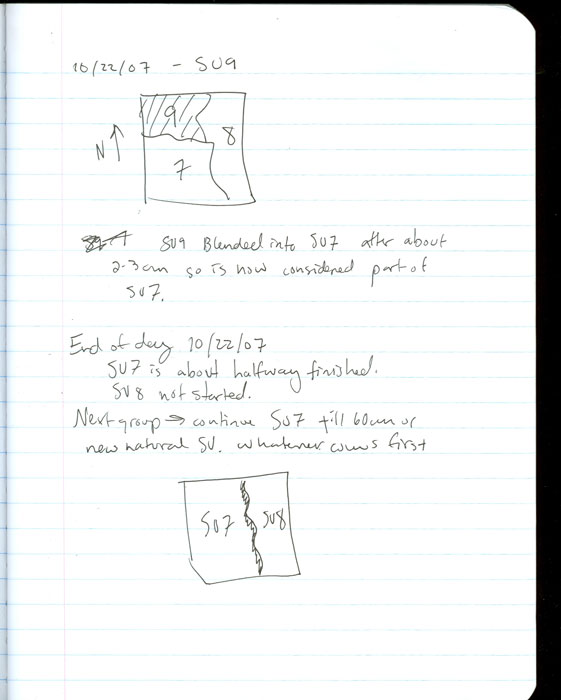 10/22/07 - SU9
9
8
N
7
SU9 Blended into SU7 after about
2-3cm so is now considered part of
SU7.
End of day 10/22/07
SU7 is about halfway finished.
SU8 not started.
Next group ⇒ continue SU7 till 60cm or
new natural SU. whatever comes first
SU7 SU8